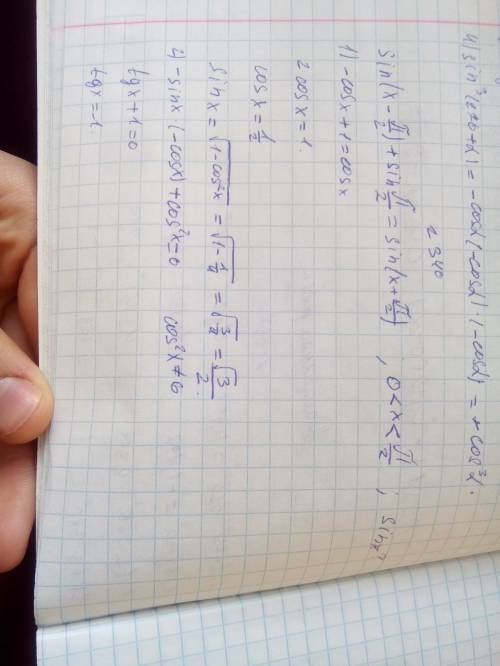 = -cosα(-cosα)·(-cosα) = + cos³α.
2340
sin(x - π/2) + sin π/2 = sin(x + π/2) , 0 < x < π/2 ; sinx-?
1) -cosx + 1 = cosx
2 cosx = 1.
cosx = 1/2
sinx = √(1-cos²x) = √(1-1/4) = √(3/4) = √3/2.
2) -sinx·(-cosx) + cos²x = 0 cos²x ≠ 0
tgx + 1 = 0
tgx = -1.